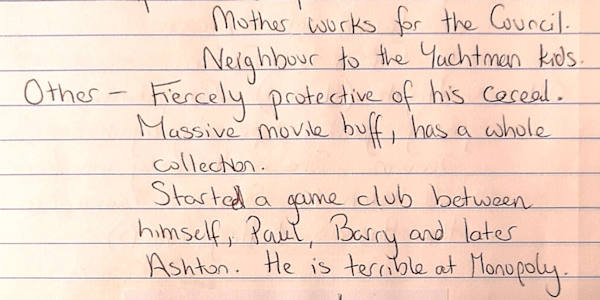 Mother works for the Council.
Neighbour to the Yachtman kids.
Other - Fiercely protective of his cereal.
Massive movie buff, has a whole
collection.
Started a game club between
himself, Paul, Barry and later
Ashton. He is terrible at Monopoly.